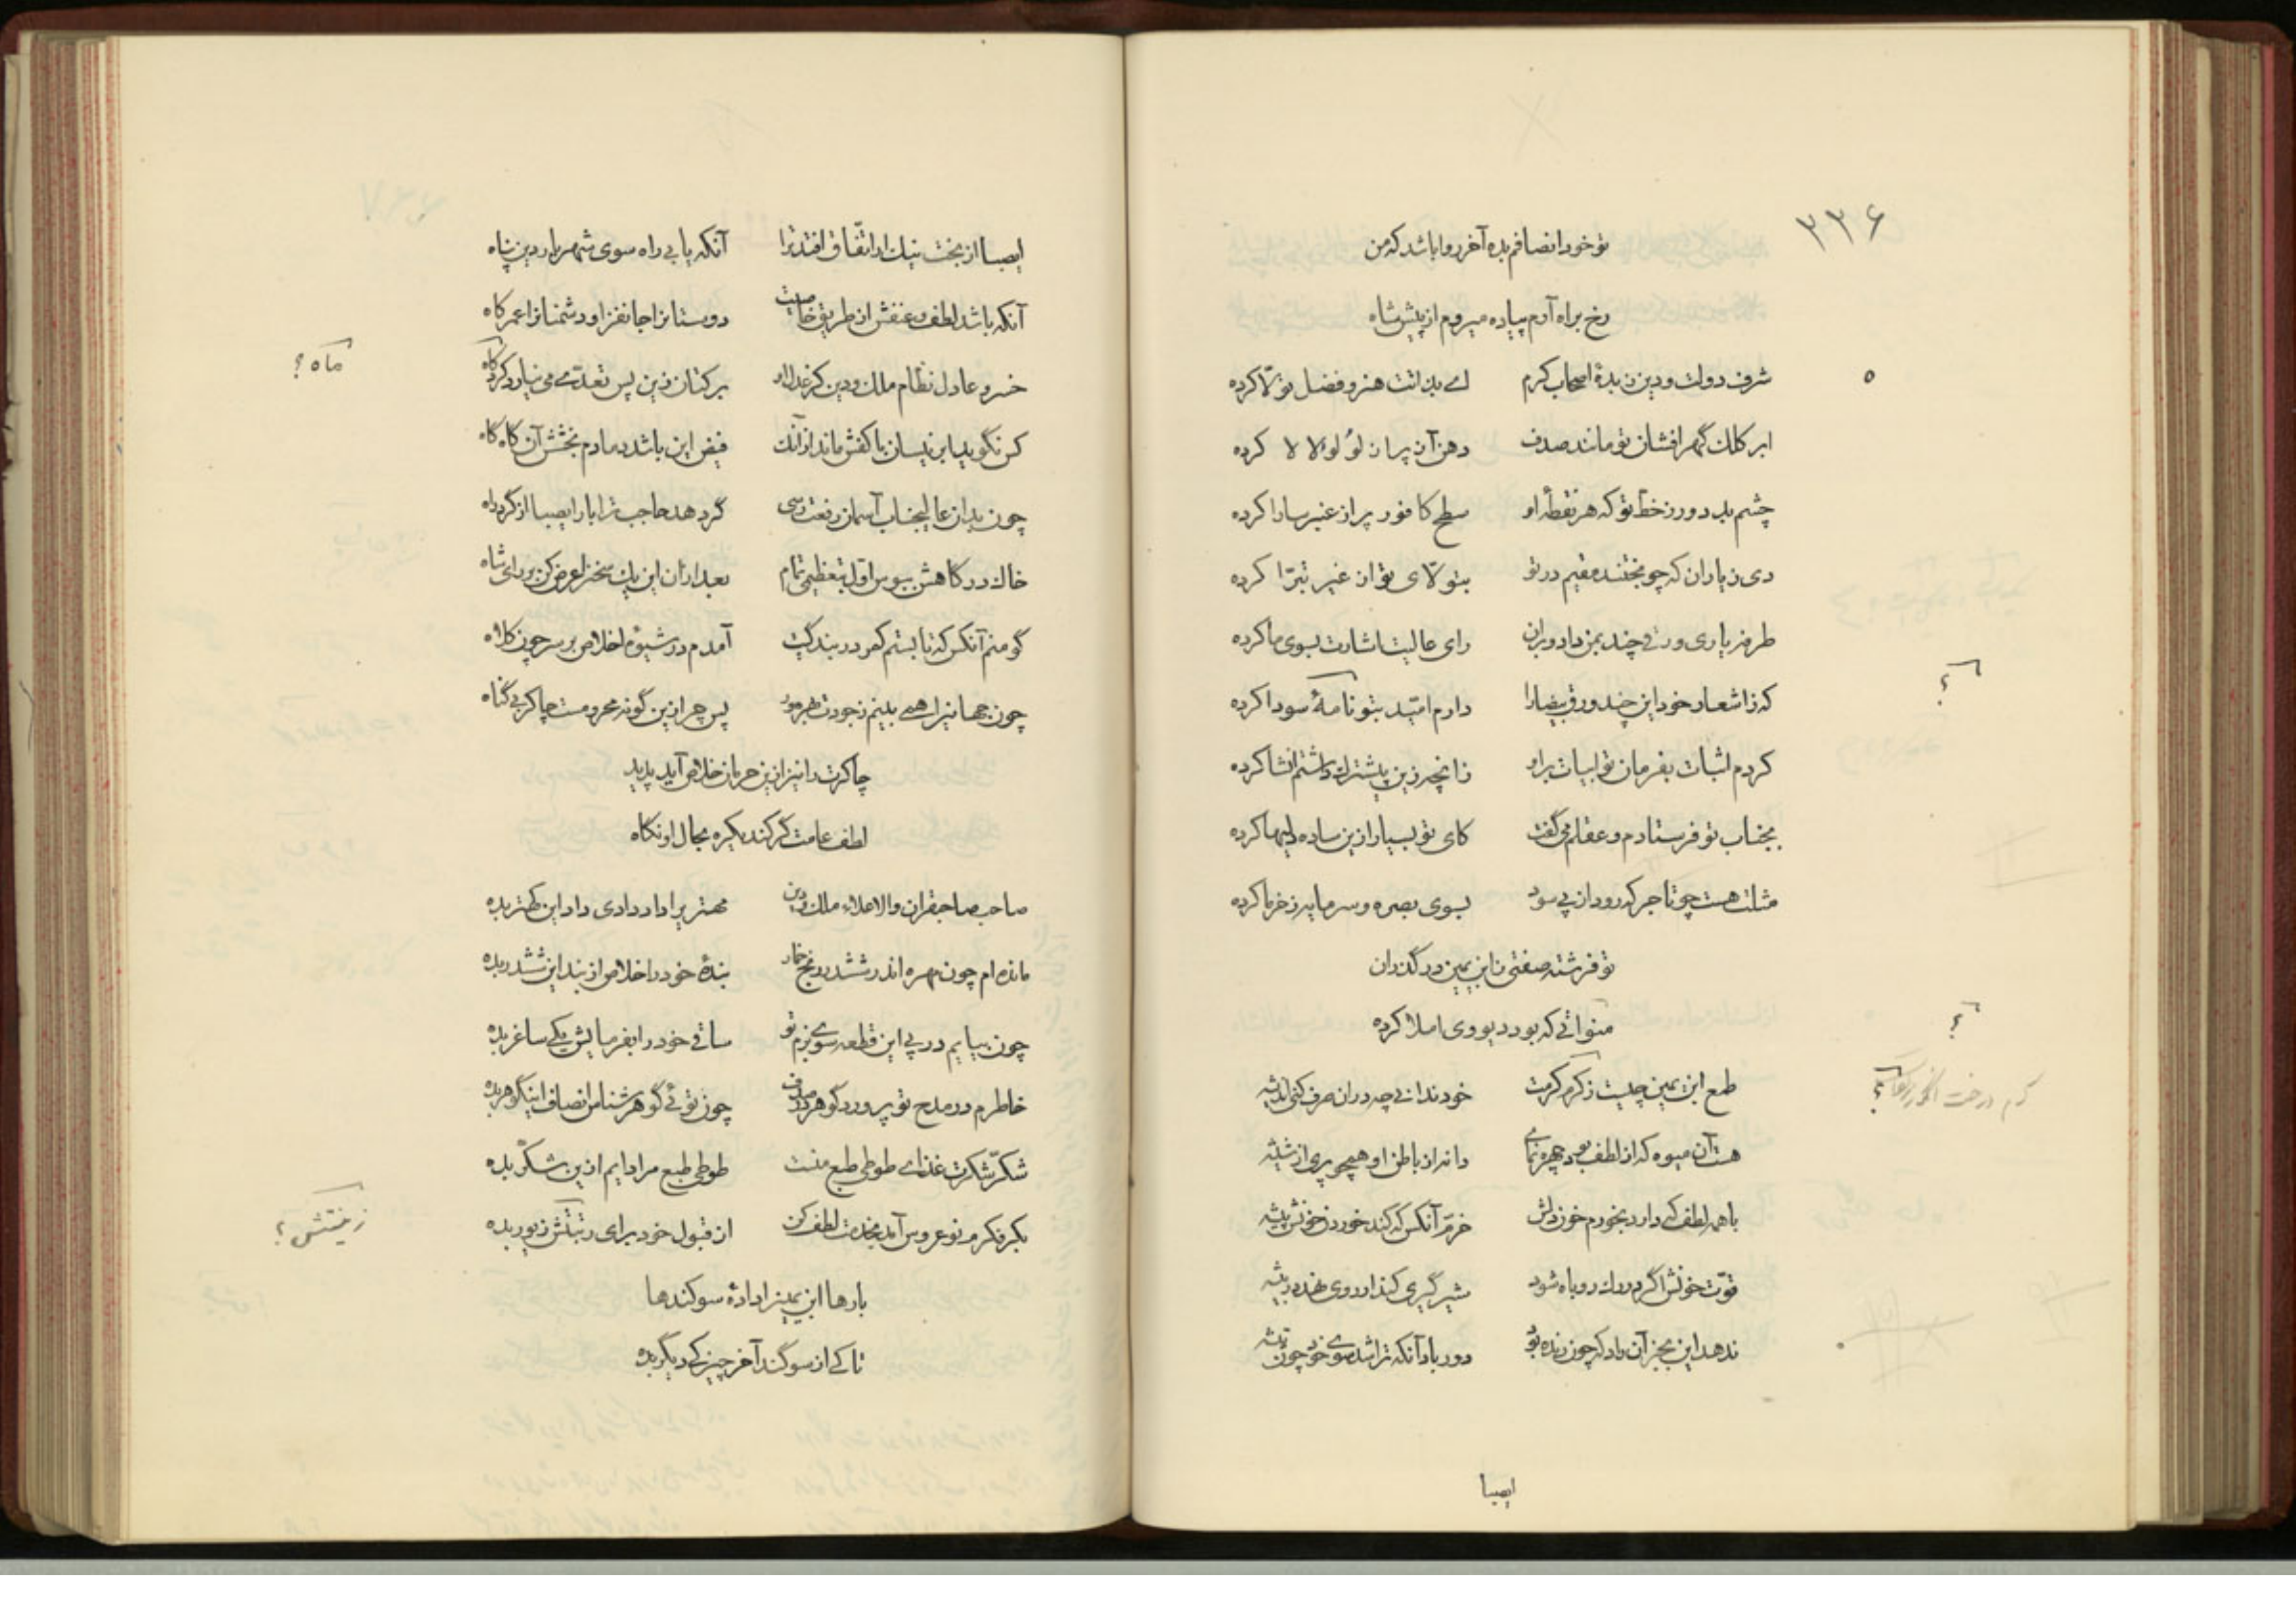 ۳۳۶
تو خود انصافم بده آخر روا باشد که من
رخ براه آرم پیاده میروم از پیش شاه
شرف دولت و دین زبدهٔ اصحاب کرم ای بذاتت هنر و فضل تولّا کرده
ابر کلک گهر افشان تو مانند صدف دهن آز پر از لؤلؤ لالا کرده
چشم بد دور ز خط تو که هر نقطهٔ او سطح کافور پر از عنبر سارا کرده
دی ز یاران که چو بختند مقیم در تو بتولّای تو از غیر تبرّا کرده
طرفه یاری ورقی چند بمن داد و بران رای عالیت اشارت بسوی ما کرده
که ز اشعار خود این چند ورق بیضا را دارم امّید بتو نامهٔ سودا کرده
؟
کردم اثبات بفرمان تو ابیات برو زانچه زین پیشترک داشتم انشا کرده
بجناب تو فرستادم و عقلم می گفت کای تو بسیار ازین ساده دلیها کرده
مثلت هست چو تاجر که رود از پی سود بسوی بصره و سرمایه ز خرما کرده
تو فرشته صفتی ز ابن یمین در گذران
منواتی که بود دیو وی املا کرده
؟
طمع ابن یمین چیست ز کرم کرمت خود ندانی چه دران صرف کنی اندیشه
کرم درخت انگور ؟
هست آن میوه که از لطف بود چهره نمای دانه از باطن او همچو پری از شیشه
با همه لطف که دارد بخورم خون دلش خرّم آنکس که کند خوردن خونش پیشه
قوّت خونش اگرم روبه شود شیر گیری کند او روی نهد در بیشه
ندهد این بجز آن راد که چون رنده بود دور باد آنکه تراشد سوی خود چون تیشه
ایصبا
ایصبا از بخت نیک ار اتّفاق افتد ترا آنکه یابی راه سوی شهریار دین پناه
آنکه باشد لطف و عنفش از طریق خاصیت دوستانرا جانفزا و دشمنانرا عمر کاه
خسرو عادل نظام ملک و دین کز عدل او بر کتان زین پس تعدّی می نیارد کرد کاه
ماه ؟
کس نگوید ابر نیسان با کفش ماند ازآنک فیض این باشد دمادم بخشش آن گاه گاه
چون بدان عالیجناب آسمان رفعت رسی گر دهد حاجب ترا بار ایصبا از گرد راه
خاک درگاهش ببوس اوّل بتعظیمی تمام بعد ازان این یک سخن را عرض کن بر رای شاه
گو منم آنکس که تا بستم کمر در بندگیت آمدم در شیوهٔ اخلاص بر سر چون کلاه
چون جهانیرا همی بینم ز جودت بهره ور پس چرا زین گونه محرومست چاکر بی گناه
چاکرت را نیز ازین حرمان خلاص آید پدید
لطف عامت گر کند یکره بحال او نگاه
صاحب صاحبقران والا علاء ملک و دین مهتریرا داد دادی داد این کهتر بده
مانده ام چون مهره اندر ششدر رنج خمار بندهٔ خود را خلاص از بند این ششدر بده
چون بیایم در پی این قطعه سوی بزم تو ساقی خود را بفرمایش یکی ساغر بده
خاطرم در مدح تو پرورد گوهر در صدف چون توئی گوهر شناس انصاف این گوهر بده
شکّر شکرت غذای طوطی طبع منست طوطی طبع مرا دایم ازین شکّر بده
بکر فکرم نو عروس آمد بخدمت لطف کن از قبول خود برای زینتش زیور بده
زینتش ؟
بارها ابن یمین را دادهٔ سوگندها
تا کی از سوگند آخر چیزکی دیگر بده